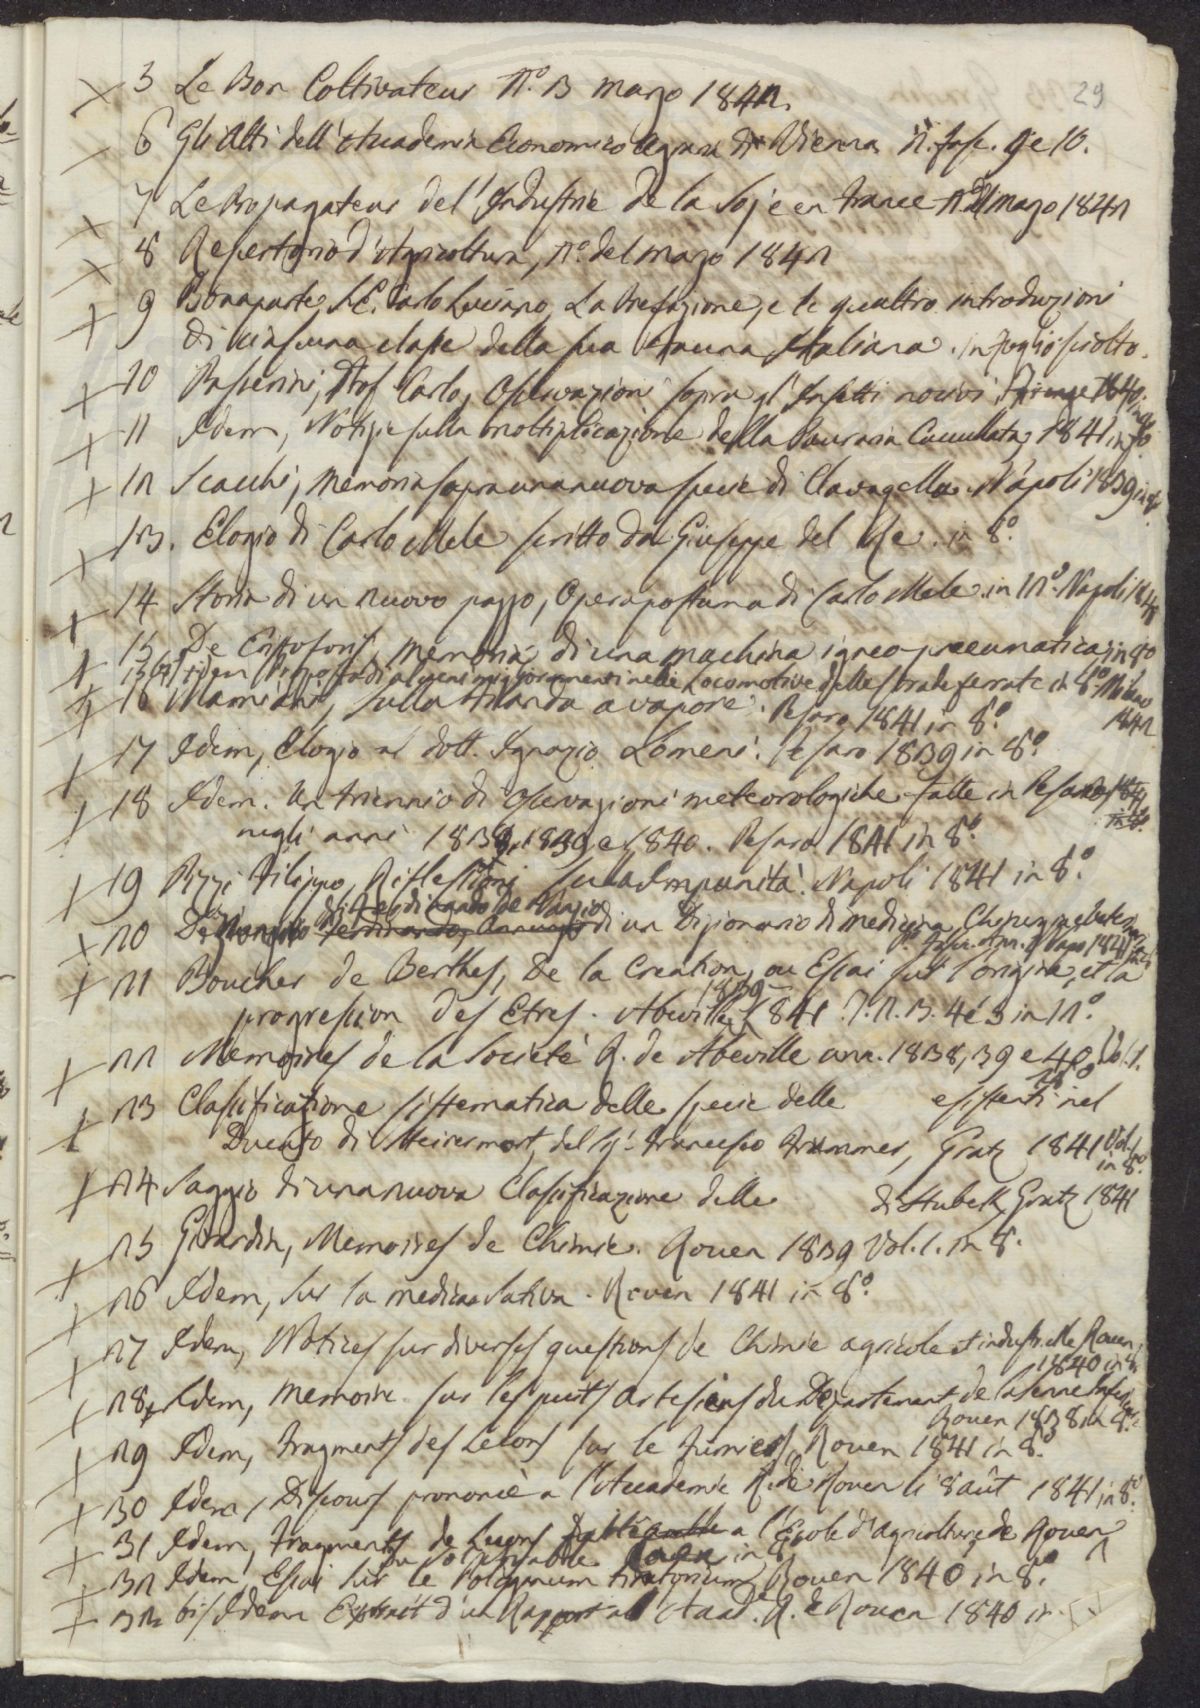 29
3 Le Bon Coltivateur N.º 3 marzo 1842.
6 Gli Atti dell'Accademia Economico Agraria di Vienna N. fasc. 9 e 10.
7 Le Propagateur de l'Industrie de la Soje en France marzo 1842
8 Repertorio d'Agricoltura, n.º del marzo 1842
9 Bonaparte, S.E. Carlo Luciano, La Prefazione, e le quattro introduzioni
di ciascuna classe della sua Fauna Italiana. in foglio sciolto.
10 Passerini, Prof. Carlo, Osservazioni sopra gl'Insetti nocivi Firenze 1840 in 8º
11 Idem, Notizie sulla moltiplicazione della Paroaria Cucullata, 1841 in 8º
12 Scacchi, Memoria sopra una nuova specie di Clavagella. Napoli 1839 in 8º
13. Elogio di Carlo Mele scritto da Giuseppe del Re. in 8.º
14 Storia di un nuovo pazzo, Opera postuma di Carlo Mele. in 12.º Napoli
15 De Cristoforis, memoria di una machina igneo-pneumatica, in 8º
15 bis idem di alcuni miglioramenti nelle Locomotive delle strade ferrate in 8º Milano
1842
16 Mamiani, sulla a vapore. Pesaro 1841 in 8.º
17 Idem, Elogio al dott. Ignazio Lomeni. Pesaro 1839 in 8.º
18 Idem. Un triennio di osservazioni meteorologiche fatte in Pesaro
negli anni 1838, 1839 e 1840. Pesaro 1841 in 8.º
19 Pizzi Filippo, Riflessioni sulla Impunità. Napoli 1841 in 8.º
20 di Ferdinando de Nunzio di un Dizionario di medicina,
21 Boucher de Perthes, De la Creation, ou Essai sur l'origine, et la
1839-
progression des Etres. Abeville 1841 T. 2. 3. 4 é 5 in 12.º
22 Memoires de la Societé R. de Abeville ann. 1838, 39 e 40 Vol. 1.
in 8º
23 Classificazione sistematica delle specie delle esistenti nel
Ducato di del Sig. Francesco Trummer, Gratz 1841 Vol. 1
in 8.º
24 Saggio di una nuova Classificazione delle di Hubek, Gratz 1841
25 Girardin, Memoires de Chimie. Rouen 1839 Vol. 1. in 8.
26 Idem, Sur la medicao sativa. Rouen 1841 in 8.º
27 Idem, Notices sur diverses questions de Chimie agricole et industrielle Rouen,
1840 in 8
28 Idem, memoire sur les puits artesiens du Departement de la Seine
Rouen 1838 in 8.º
29 Idem, Fragments des Leçons sur le fumier, Rouen 1841 in 8.º
30 Idem, Discours prononcè a l'Accademie R. de Rouen li 8 aût 1841 in 8.º
31 Idem, Fragments de Leçons a l'École d'agriculture de Rouen,
in 8
32 Idem Essai sur le Poligonum tinctorium, Rouen 1840 in 8.º
32 bis Idem Extrait d'un Rapport al Acad. R. de Rouen 1840 in